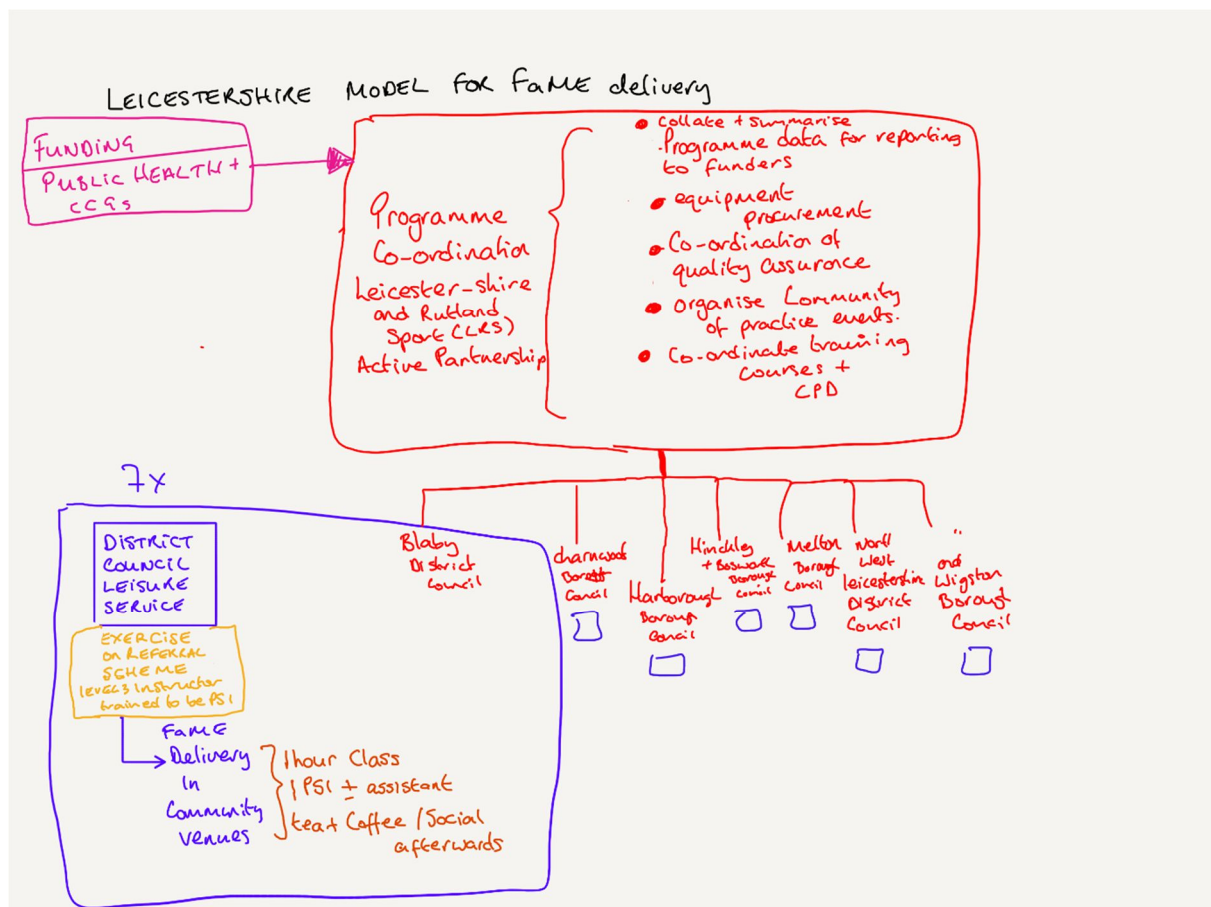 LEICESTERSHIRE MODEL FOR FaME delivery
FUNDING
PUBLIC HEALTH +
CCGs
Programme
Co-ordination
Leicester-shire
and Rutland
Sport (LRS)
Active Partnership
• collate + summarise
. Programme data for reporting
to funders
• equipment
procurement
• Co-ordination of
quality assurance
• organise Community
of practice events.
• Co-ordinate training
courses +
CPD
7x
DISTRICT
COUNCIL
LEISURE
SERVICE
EXERCISE
on REFERRAL
SCHEME
LEVEL 3 instructor
trained to be PSI
FaME
Delivery
in
Community
Venues
1hour Class
1 PSI ± assistant
tea + Coffee / Social
afterwards
Blaby
District
Council
Charnwood
Council
Harborough
Borough
Council
Hinckley
+ Bosworth
Borough
Council
Melton
Borough
Council
North
West
leicestershire
District
Council
and
Wigston
Borough
Council